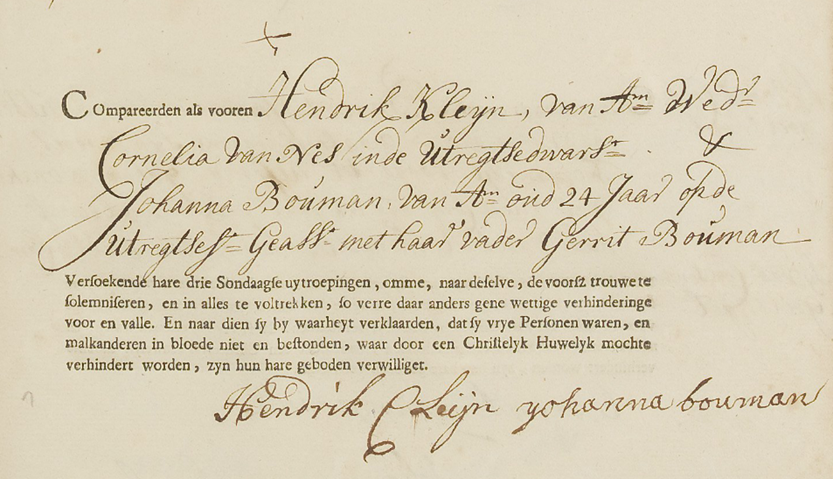 COmpareerden als vooren Hendrik Kleijn, van Am Wedr
Cornelia van Nes inde Utregtsedwarst. &
Johanna Bouman, van Am oud 24 Jaar op de
Utregtsest Geasst met haar vader Gerrit Bouman
Versoekende hare drie Sondaagse uytroepingen, omme, naar deselve, de voorsz trouwe te
solemniseren, en in alles te voltrekken, so verre daar anders gene wettige verhinderinge
voor en valle. En naar dien sy by waarheyt verklaarden, dat sy vrye Personen waren, en
malkanderen in bloede niet en bestonden, waar door een Christelyk Huwelyk mochte
verhindert worden, zyn hun hare geboden verwilliget.
Hendrik CLeijn yohanna bouman